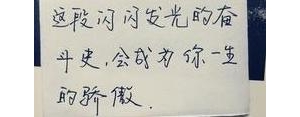 这段闪闪发光的奋
斗史,会成为你一生
的骄傲.